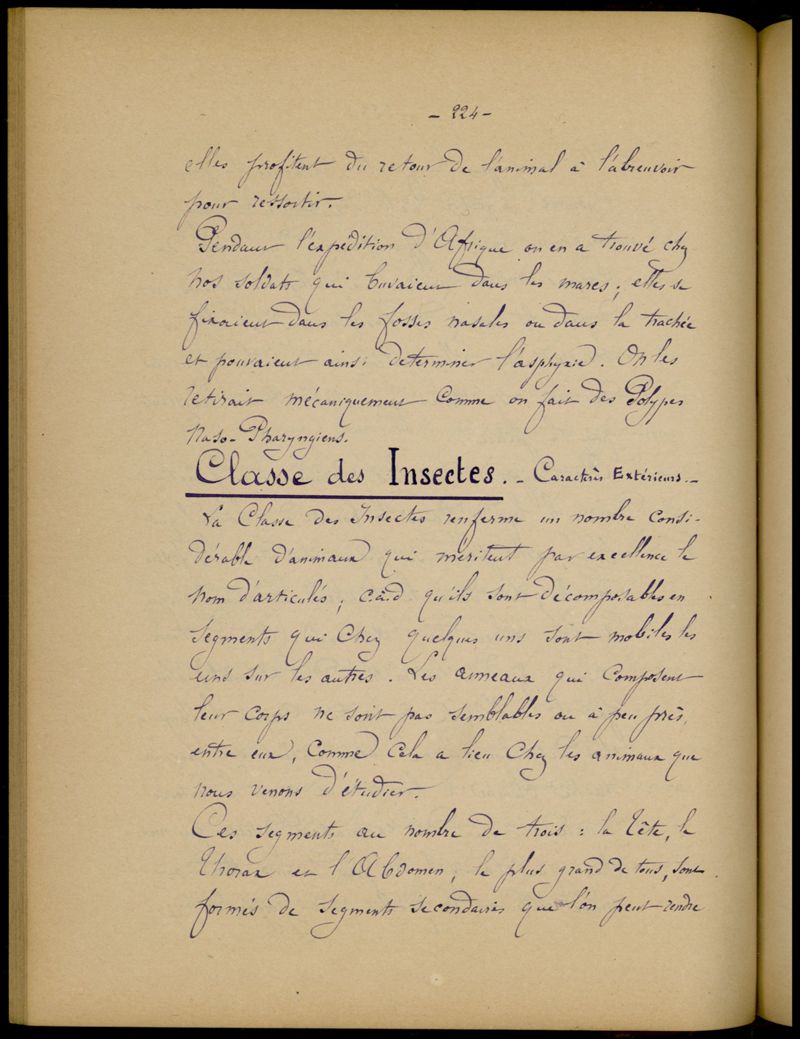 - 224 -
elles profitent du retour de l'animal à l'abreuvoir
pour ressortir.
Pendant l'expédition d'Afrique on en a trouvé chez
nos soldats qui buvaient dans les mares ; elles se
fixaient dans les fosses nasales ou dans la trachée
et pouvaient ainsi déterminer l'asphyxie. On les
retirait mécaniquement comme on fait des Polypes
naso-Pharyngiens.
Classe des Insectes. - Caractères Extérieurs. -
La Classe des Insectes renferme un nombre consi-
dérable d'animaux qui méritent par excellence le
nom d'articulés ; c.à.d qu'ils sont décomposables en
segments qui chez quelques uns sont mobiles les
uns sur les autres. Les anneaux qui composent
leur corps ne sont pas semblables ou à peu près,
entre eux, comme cela a lieu chez les animaux que
nous venons d'étudier.
Ces segments au nombre de trois : la Tête, le
Thorax et l'Abdomen, le plus grand de tous, sont
formés de segments secondaires que l'on peut rendre